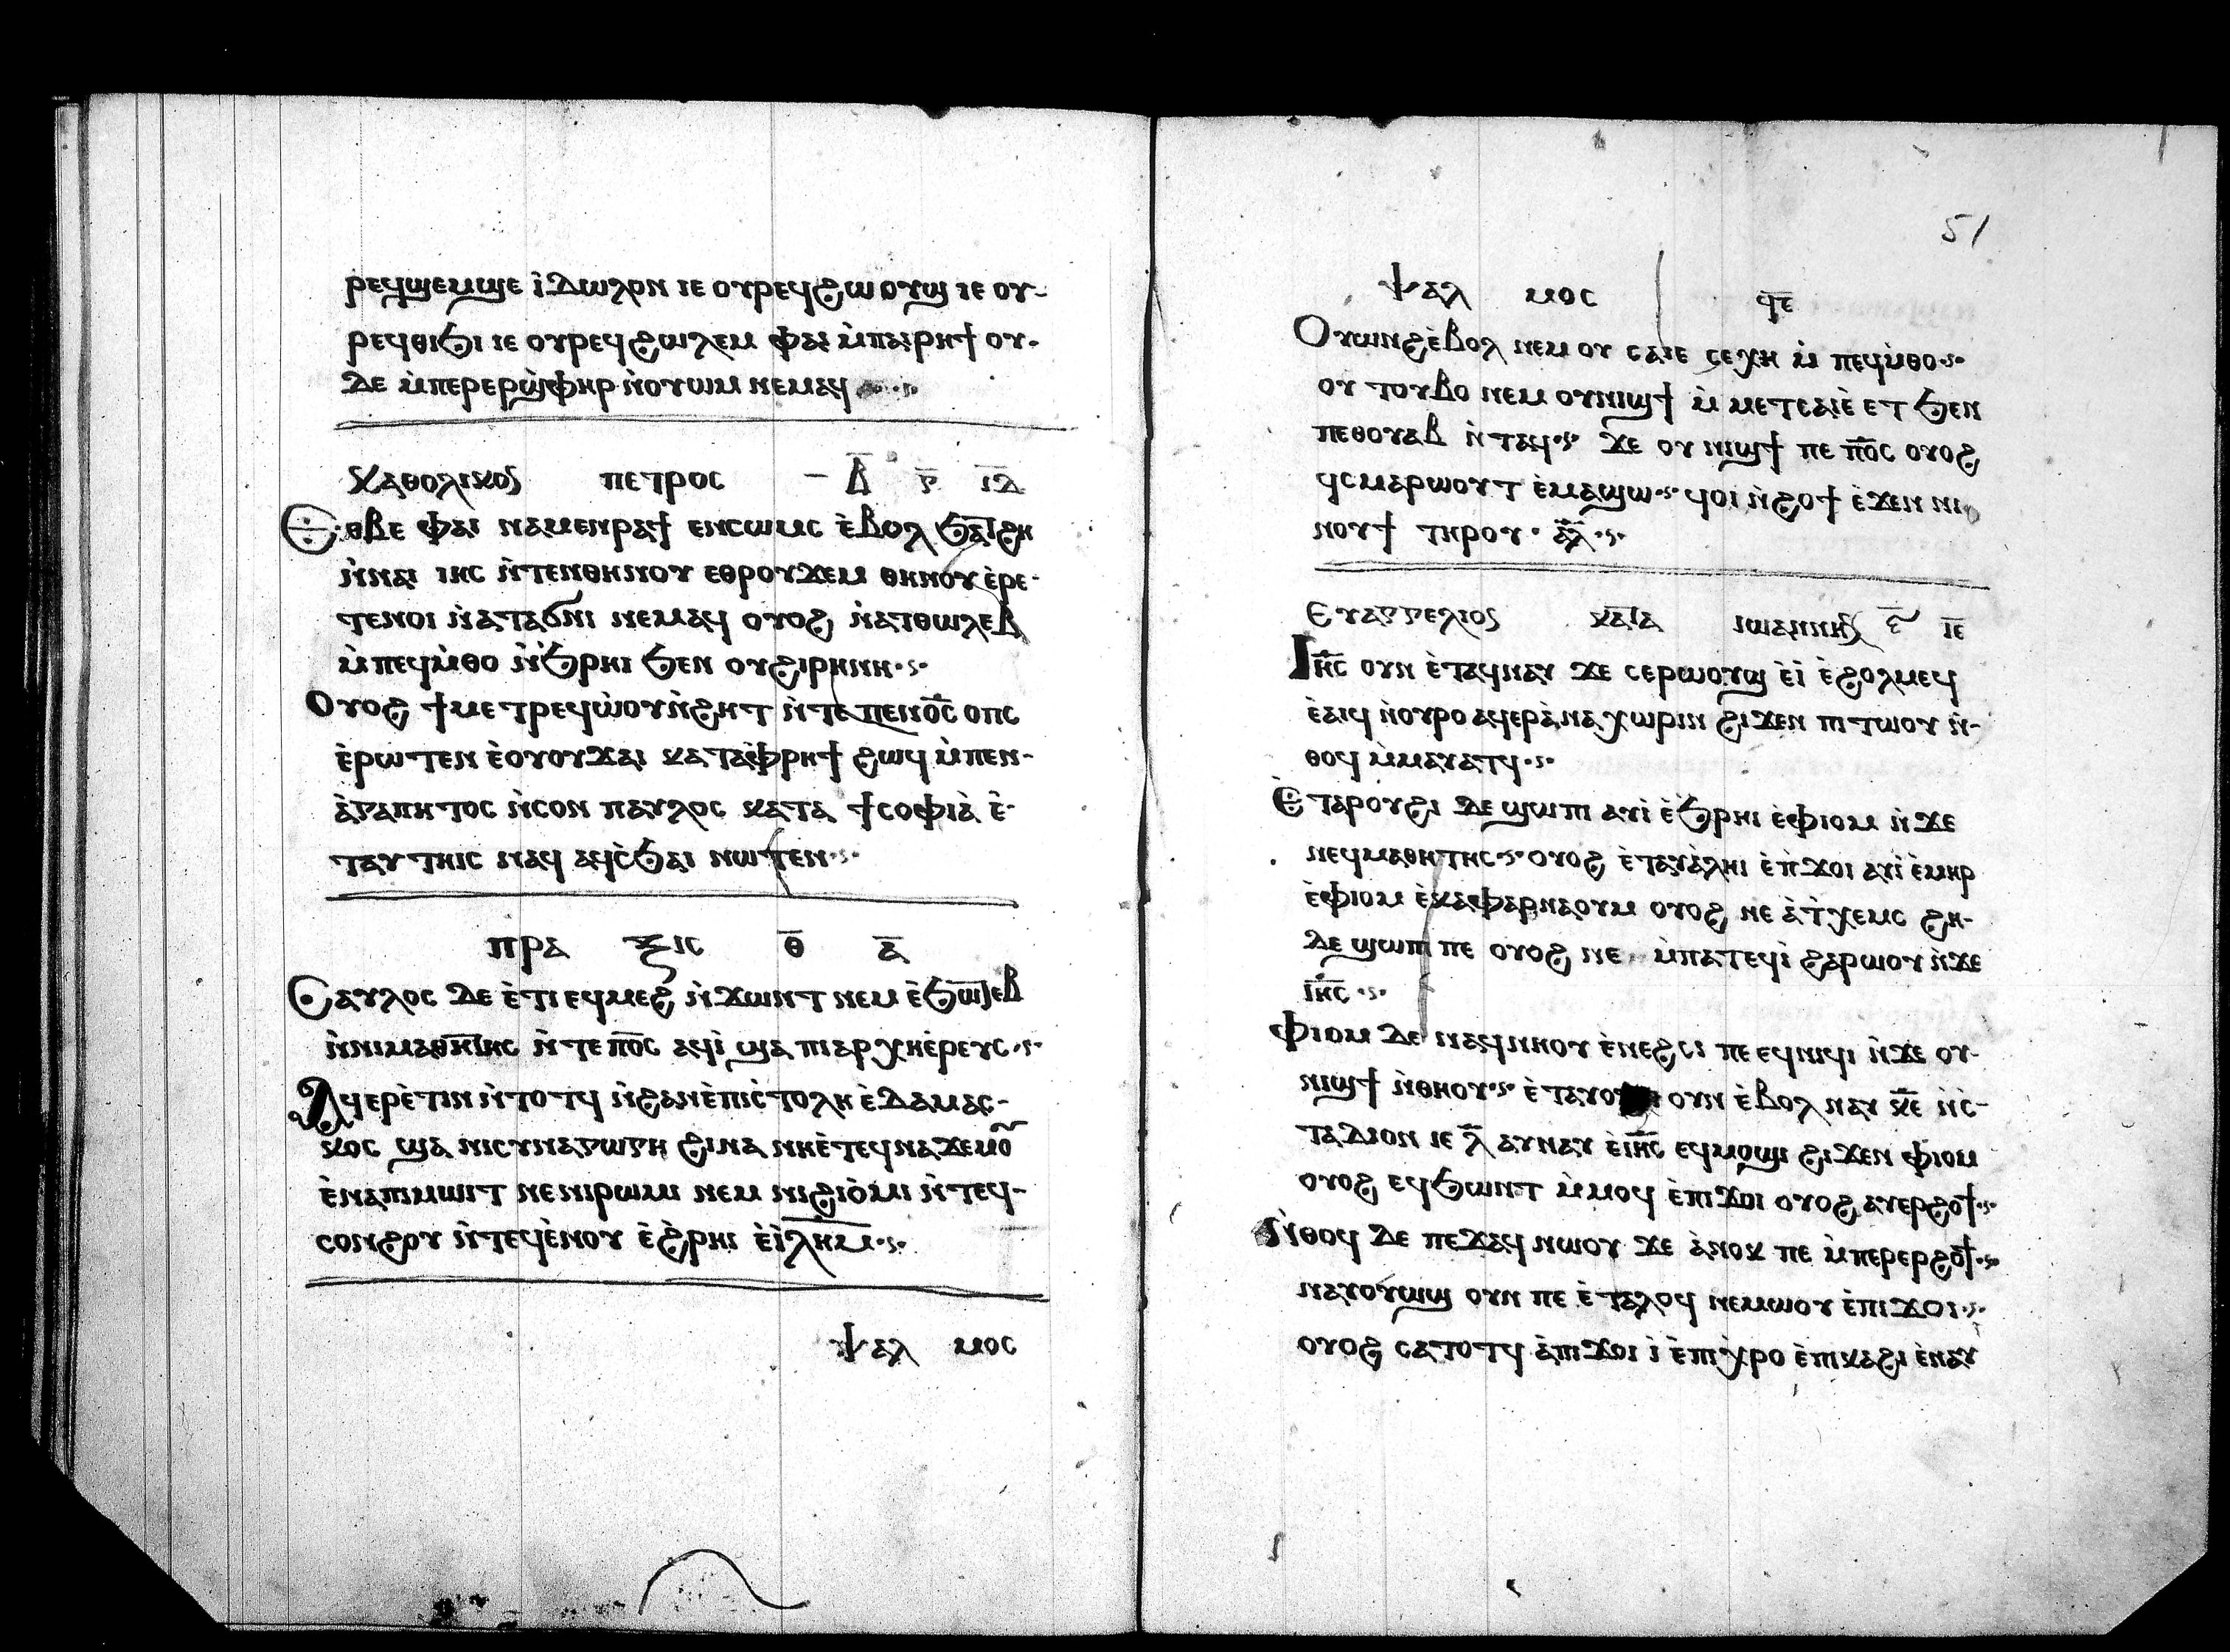 ⲣⲉϥϣⲉⲙϣⲉ ⲓ̀ⲇⲱⲗⲟⲛ ⲓⲉ ⲟⲩⲣⲉϥϩⲱⲟⲩϣ ⲓⲉ ⲟⲩ-
ⲣⲉϥⲑⲓϧⲓ ⲓⲉ ⲟⲩⲣⲉϥϩⲱⲗⲉⲙ ⲫⲁⲓ ⲙ̀ⲡⲁⲓⲣⲏϯ ⲟⲩ-
ⲇⲉ ⲙ̀ⲡⲉⲣⲉⲣϣ̀ⲫⲏⲣ ⲛ̀ⲟⲩⲱⲙ ⲛⲉⲙⲁϥ
ⲕⲁⲑⲟⲗⲓⲕⲟⲥ ⲡⲉⲧⲣⲟⲥ ⲃ̅ ⲅ̅ ⲓ̅ⲇ̅
Ⲉⲑⲃⲉ ⲫⲁⲓ ⲛⲁⲙⲉⲛⲣⲁϯ ⲉⲛⲥⲱⲙⲥ ⲉ̀ⲃⲟⲗ ϧⲁⲧϩⲏ
ⲛ̀ⲛⲁⲓ ⲓⲏⲥ ⲛ̀ⲧⲉⲛⲑⲏⲛⲟⲩ ⲉⲑⲣⲟⲩϫⲉⲙ ⲑⲏⲛⲟⲩ ⲉ̀ⲣⲉ-
ⲧⲉⲛⲟⲓ ⲛ̀ⲁⲧⲁϭⲛⲓ ⲛⲉⲙⲁϥ ⲟⲩⲟϩ ⲛ̀ⲁⲧⲑⲱⲗⲉⲃ
ⲙ̀ⲡⲉϥⲙ̀ⲑⲟ ⲛ̀ϧ̀ⲣⲏⲓ ϧⲉⲛ ⲟⲩϩⲓⲣⲏⲛⲏ·ⲋ·
Ⲟⲩⲟϩ ϯⲙⲉⲧⲣⲉϥⲱ̀ⲟⲩⲛ̀ϩⲏⲧ ⲛ̀ⲧⲉⲡⲉⲛⲟ̅ⲥ̅ ⲟⲡⲥ
ⲉ̀ⲣⲱⲧⲉⲛ ⲉ̀ⲟⲩⲟⲩϫⲁⲓ ⲕⲁⲧⲁⲫ̀ⲣⲏϯ ϩⲱϥ ⲙ̀ⲡⲉⲛ-
ⲁ̀ⲅⲁⲡⲏⲧⲟⲥ ⲛ̀ⲥⲟⲛ ⲡⲁⲩⲗⲟⲥ ⲕⲁⲧⲁ ϯⲥⲟⲫⲓⲁ̀ ⲉ̀-
ⲧⲁⲩⲧⲏⲓⲥ ⲛⲁϥ ⲁϥⲥ̀ϧⲁⲓ ⲛⲱⲧⲉⲛ·ⲋ·
ⲡⲣⲁ ⲝⲓⲥ ⲑ̅ ⲁ̅
Ⲥⲁⲩⲗⲟⲥ ⲇⲉ ⲉ̀ⲧⲓ ⲉϥⲙⲉϩ ⲛ̀ϫⲱⲛⲧ ⲛⲉⲙ ⲉ̀ϧⲱⲧⲉⲃ
ⲛ̀ⲛⲓⲙⲁⲑⲏⲧⲏⲥ ⲛ̀ⲧⲉ ⲡⲟ̅ⲥ̅ ⲁϥⲓ̀ ϣⲁ ⲡⲓⲁⲣⲭⲏⲉ̀ⲣⲉⲩⲥ·ⲋ·
Ⲁϥⲉⲣⲉ̀ⲧⲓⲛ ⲛ̀ⲧⲟⲧϥ ⲛ̀ϩⲁⲛⲉ̀ⲡⲓⲥ̀ⲧⲟⲗⲏ ⲉ̀ⲇⲁⲙⲁⲥ-
ⲕⲟⲥ ϣⲁ ⲛⲓⲥⲩⲛⲁⲅⲱⲅⲏ ϩⲓⲛⲁ ⲛⲏⲉ̀ⲧⲉϥⲛⲁϫⲉⲙⲟ̅
ⲉ̀ⲛⲁⲡⲓⲙⲱⲓⲧ ⲛⲉⲛⲓⲣⲱⲙⲓ ⲛⲉⲙ ⲛⲓϩⲓⲟ̀ⲙⲓ ⲛ̀ⲧⲉϥ-
ⲥⲟⲛϩⲟⲩ ⲛ̀ⲧⲉϥⲉ̀ⲛⲟⲩ ⲉ̀ϩ̀ⲣⲏⲓ ⲉ̀ⲓ̅ⲗ̅ⲏ̅ⲙ̅·ⲋ·
ⲯⲁⲗ ⲙⲟⲥ
51
ⲯⲁⲗ ⲙⲟⲥ ϥ̅ⲉ̅
Ⲟⲩⲱⲛϩⲉ̀ⲃⲟⲗ ⲛⲉⲙ ⲟⲩ ⲥⲁⲓⲉ ⲥⲉⲭⲏ ⲙ̀ ⲡⲉϥⲙ̀ⲑⲟ·ⲋ·
ⲟⲩ ⲧⲟⲩⲃⲟ ⲛⲉⲙ ⲟⲩⲛⲓϣϯ ⲙ̀ ⲙⲉⲧⲥⲁⲓⲉ̀ ⲉⲧ ϧⲉⲛ
ⲡⲉⲑⲟⲩⲁⲃ ⲛ̀ⲧⲁϥ·ⲋ· ϫⲉ ⲟⲩ ⲛⲓϣϯ ⲡⲉ ⲡⲟ̅ⲥ̅ ⲟⲩⲟϩ
ϥⲥⲙⲁⲣⲱⲟⲩⲧ ⲉ̀ⲙⲁϣⲱ·ⲋ· ϥⲟⲓ ⲛ̀ϩⲟϯ ⲉ̀ϫⲉⲛ ⲛⲓ
ⲛⲟⲩϯ ⲧⲏⲣⲟⲩ· ⲁ̅ⲗ̅·ⲋ·
Ⲉⲩⲁⲅⲅⲉⲗⲓⲟⲥ ⲕⲁⲧⲁ ⲓⲱⲁⲛⲛⲏⲥ ⲋ̅ ⲓ̅ⲉ̅
Ⲓⲏ̅ⲥ̅ ⲟⲩⲛ ⲉ̀ⲧⲁϥⲛⲁⲩ ϫⲉ ⲥⲉⲣⲱⲟⲩϣ ⲉ̀ⲓ̀ ⲉ̀ϩⲟⲗⲙⲉϥ
ⲉ̀ⲁⲓϥ ⲛ̀ⲟⲩⲣⲟ ⲁϥⲉⲣⲁ̀ⲛⲁⲭⲱⲣⲓⲛ ϩⲓϫⲉⲛ ⲡⲓⲧⲱⲟⲩ ⲛ̀-
ⲑⲟϥ ⲙ̀ⲙⲁⲩⲁⲧϥ·ⲋ·
Ⲉ̀ⲧⲁⲣⲟⲩϩⲓ ⲇⲉ ϣⲱⲡⲓ ⲁⲩⲓ̀ ⲉ̀ϧ̀ⲣⲏⲓ ⲉ̀ⲫⲓⲟⲙ ⲛ̀ϫⲉ
ⲛⲉϥⲙⲁⲑⲏⲧⲏⲥ·ⲋ· ⲟⲩⲟϩ ⲉ̀ⲧⲁⲩⲁ̀ⲗⲏⲓ ⲉ̀ⲡ̀ϫⲟⲓ ⲁⲩⲓ̀ ⲉ̀ⲙⲏⲣ
ⲉ̀ⲫⲓⲟⲙ ⲉ̀ⲕⲁⲫⲁⲣⲛⲁⲟⲩⲙ ⲟⲩⲟϩ ⲛⲉ ⲁ̀ⲧ̀ⲭⲉⲙⲥ ϩⲏ-
ⲇⲉ ϣⲱⲡⲓ ⲡⲉ ⲟⲩⲟϩ ⲛⲉ ⲙ̀ⲡⲁⲧⲉϥⲓ̀ ϩⲁⲣⲱⲟⲩ ⲛ̀ϫⲉ
ⲓⲏ̅ⲥ̅·ⲋ·
Ⲫⲓⲟⲙ ⲇⲉ ⲛⲁϥⲛⲏⲟⲩ ⲉ̀ⲛⲉϩⲥⲓ ⲡⲉ ⲉϥⲛⲓϥⲓ ⲛ̀ϫⲉ ⲟⲩ-
ⲛⲓϣϯ ⲛ̀ⲑⲏⲟⲩ·ⲋ· ⲉ̀ⲧⲁⲩⲟ ⲟⲩⲛ ⲉ̀ⲃⲟⲗ ⲛⲁⲩ ⲕ̅ⲉ̅ ⲛ̀ⲥ̀-
ⲧⲁⲇⲓⲟⲛ ⲓⲉ ⲗ̅ ⲁⲩⲛⲁⲩ ⲉ̀ⲓⲏ̅ⲥ̅ ⲉϥⲙⲟϣⲓ ϩⲓϫⲉⲛ ⲫⲓⲟⲙ
ⲟⲩⲟϩ ⲉϥϧⲱⲛⲧ ⲙ̀ⲙⲟϥ ⲉ̀ⲡⲓϫⲟⲓ ⲟⲩⲟϩ ⲁⲩⲉⲣϩⲟϯ·ⲋ·
Ⲛ̀ⲑⲟϥ ⲇⲉ ⲡⲉϫⲁϥ ⲛⲱⲟⲩ ϫⲉ ⲁ̀ⲛⲟⲕ ⲡⲉ ⲙ̀ⲡⲉⲣⲉⲣϩⲟϯ·ⲋ·
ⲛⲁⲩⲟⲩⲱϣ ⲟⲩⲛ ⲡⲉ ⲉ̀ⲧⲁⲗⲟϥ ⲛⲉⲙⲱⲟⲩ ⲉ̀ⲡⲓϫⲟⲓ·ⲋ·
ⲟⲩⲟϩ ⲥⲁⲧⲟⲧϥ ⲁ̀ⲡⲓϫⲟⲓ ⲓ̀ ⲉ̀ⲡⲓⲭ̀ⲣⲟ ⲉ̀ⲡⲓⲕⲁϩⲓ ⲉ̀ⲛⲁⲩ